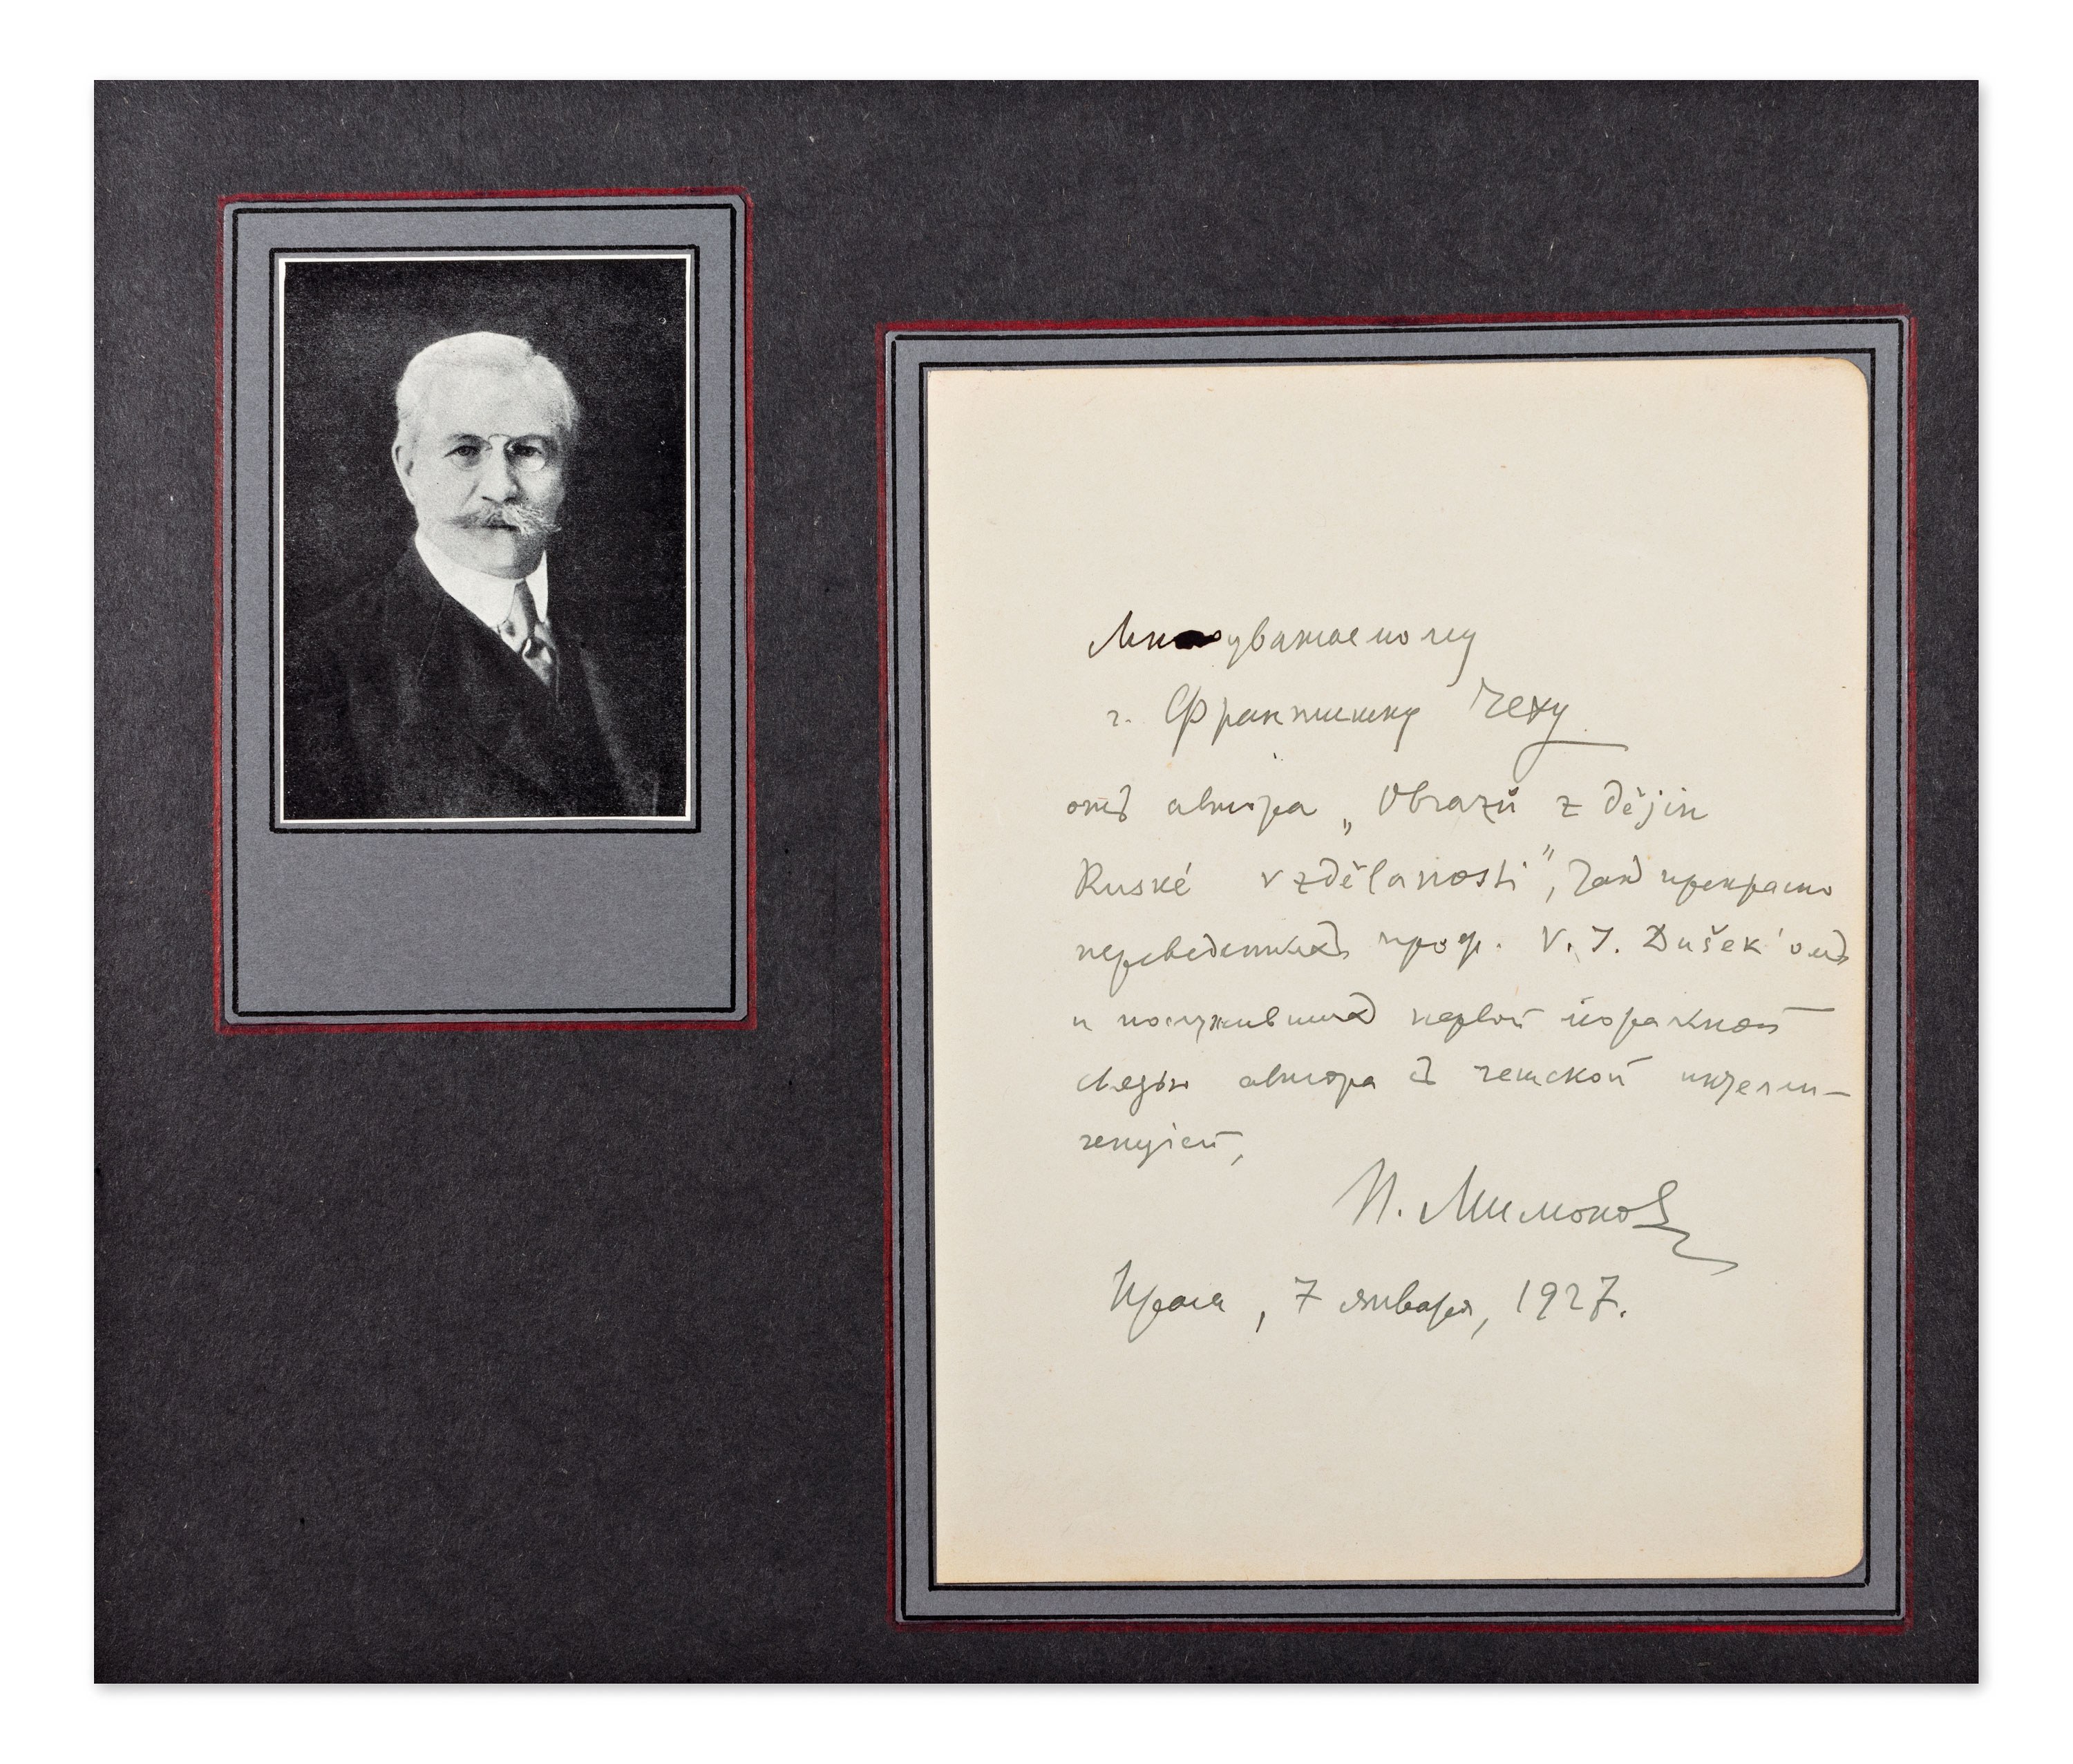 Многоуважаемому
г. Франтишку Чеху
отъ автора „Obrazů z dějin
Ruské vzdělanosti", такъ прекрасно
переведенныхъ проф. V. J. Dušek'омъ
и послужившихъ первой
связи автора съ чешской интелли-
генціей,
П. Милюковъ
Прага, 7 января, 1927.